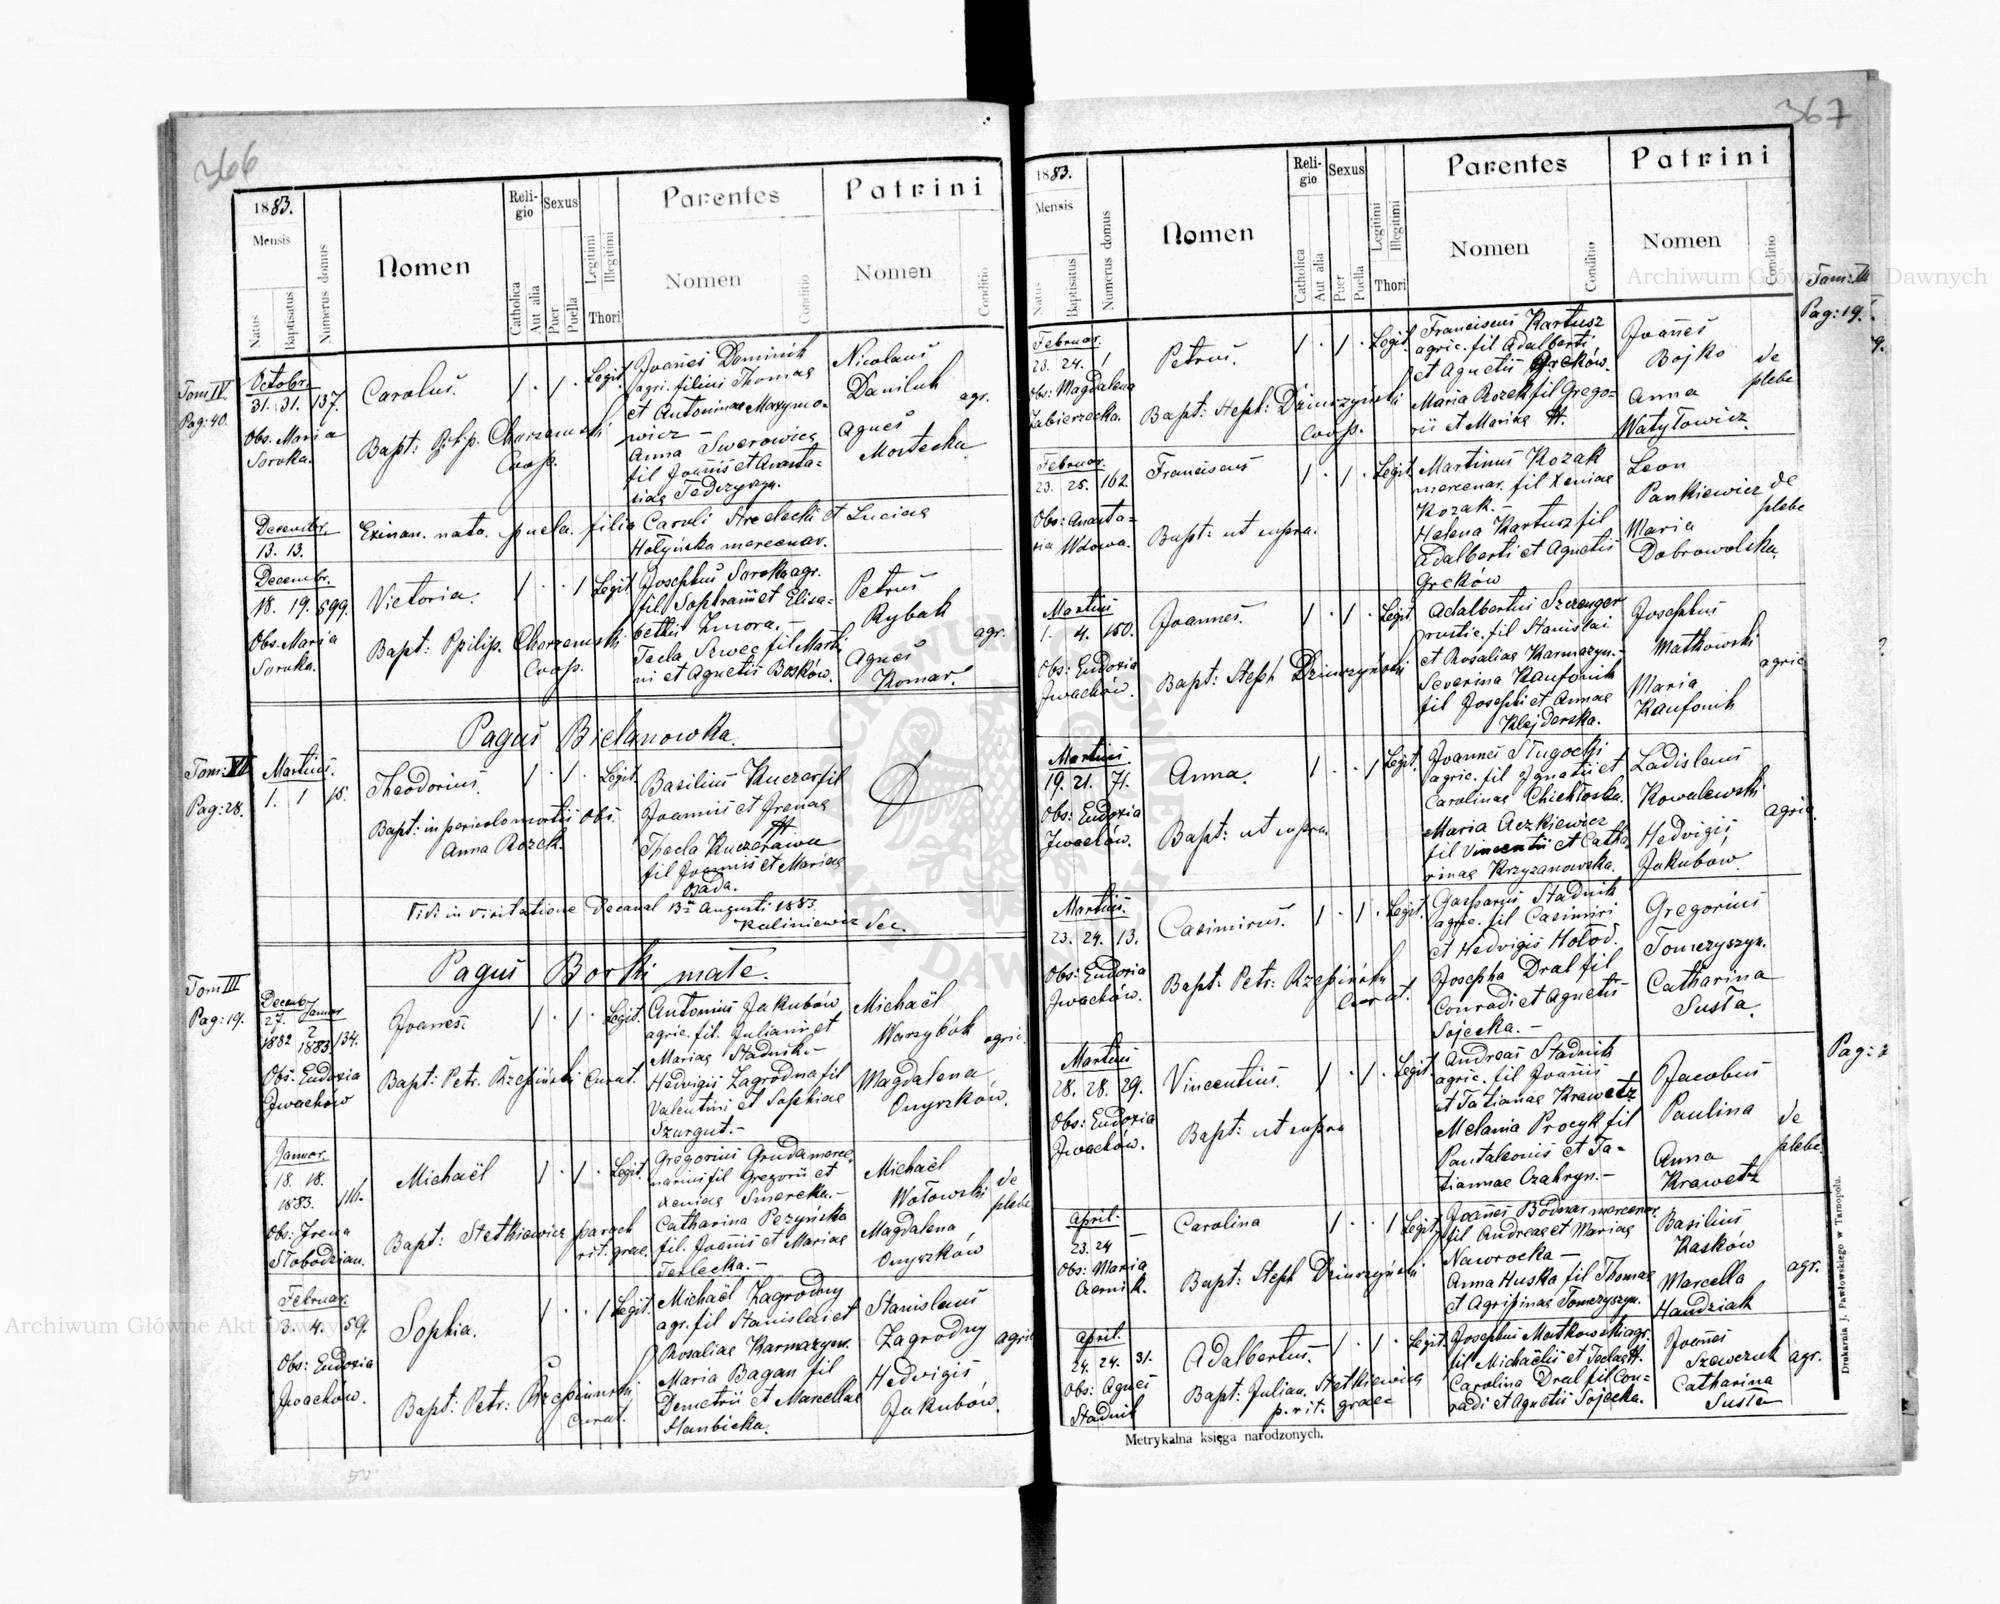 366
1883.
Mensis
Natus
Baptisatus
Numerus domus
Nomen
Religio
Catholica
Aut alia
Sexus
Puer
Puella
Legitimi
Illegitimi
Thori
Parentes
Nomen
Conditio
Patrini
Nomen
Conditio
Tom IV
Pag: 40.
Octobr.
31. 31. 137.
Obs. Maria
Soroka.
Carolus.
Bapt: Phip. Chorzemski
Coop.
1 . 1 . Legit.
Joannes Dominik
agri. filius Thomae
et Antoninae Maxymo-
wicz –
Anna Swerowicz
fil Joannis et Anasta-
siae Fedczyszyn.
Nicolaus
Daniluk
agr.
Agnes
Mostecka
Decembr.
13. 13.
Exinan. nata. puella. filia Caroli Strelecki et Luciae
Hołyńska mercenar.
Decembr.
18. 19. 599.
Obs. Maria
Soroka.
Victoria.
Bapt: Philip. Chorzemski
Coop.
1 . . 1 Legit.
Josephus Soroka agr.
fil Sophroni et Elisa-
bethis Zmora. –
Tecla Szwec fil Marti-
ni et Agnetis Bosków.
Petrus
Rybak
agr.
Agnes
Komar.
Pagus Bielanowka.
Tom: VI
Pag: 28.
Martius.
1. 1 18.
Theodorius.
Bapt: in periculo mortis Obs.
Anna Rozek.
1 . 1 . Legit.
Basilius Kuczer fil
Joannis et Irenae
Thecla Kuczerawa
fil Joannis et Mariae
Osada.
Vidi in visitatione Decanal 13 Augusti 1883.
Kaliniewicz Dec.
Pagus Borki małe.
Tom III
Pag: 19.
Decembr. Januar
27. 2
1882 1883 134.
Obs: Eudoxia
Iwachów
Joannes.
Bapt: Petr. Rzepiński Curat.
1 . 1 . Legit.
Antonius Jakubów
agric. fil. Juliani et
Mariae Stadnik –
Hedvigis Zagrodna fil
Valentini et Sophiae
Szargut. –
Michaël
Warzybók
agric.
Magdalena
Onyszków.
Januar.
18. 18.
1883. 111.
Obs: Irena
Słobodzian.
Michaël
Bapt: Stetkiewicz paroch
rit. graec.
1 . 1 . Legit.
Gregorius Gruda merce-
narius fil Gregorii et
Xeniae Smereka. –
Catharina Pezyńska
fil. Joannis et Mariae
Terlecka. –
Michaël
Wołowski
de
plebe
Magdalena
Onyszków
Februar.
3. 4. 59.
Obs: Eudoxia
Iwachów.
Sophia.
Bapt: Petr: Rzepinski
Curat.
1 . . 1 Legit.
Michaël Zagrodny
agr. fil Stanislai et
Rosaliae Karmazyn.
Maria Bagan fil
Demetrii et Marcellae
Hanbicka.
Stanislaus
Zagrodny
agric
Hedvigis
Jakubów.
50
367
1883.
Mensis
Natus
Baptisatus
Numerus domus
Nomen
Religio
Catholica
Aut alia
Sexus
Puer
Puella
Legitimi
Illegitimi
Thori
Parentes
Nomen
Conditio
Patrini
Nomen
Conditio
Tom: III
Pag: 19.
Februar.
23. 24. 1
Obs: Magdalena
Zabierzecka.
Petrus.
Bapt: Steph: Dziurzyński
Coop.
1 . 1 . Legit.
Franciscus Kartusz
agric. fil Adalberti
et Agnetis Greków.
Maria Rozek fil Grego-
rii et Mariae H.
Joannes
Bojko
de
plebe
Anna
Watyłowicz.
Februar.
23. 25. 162.
Obs: Anasta-
sia Wdowa.
Franciscus
Bapt: ut supra.
1 . 1 . Legit.
Martinus Kozak
mercenar. fil Xeniae
Kozak. –
Helena Kartusz fil
Adalberti et Agnetis
Greków
Leon
Pankiewicz
de
plebe
Maria
Dobrowolska.
Martius
1. 4. 150.
Obs: Eudoxia
Iwachów.
Joannes.
Bapt: Steph Dziurzyński
1 . 1 . Legit.
Adalbertus Szczenger
rustic. fil Stanislai
et Rosaliae Karmazyn. –
Severina Kanfonik
fil Josephi et Annae
Klejderska.
Josephus
Matkowski
agric
Maria
Kanfonik
Martius.
19. 21. 71.
Obs: Eudoxia
Iwachów.
Anna.
Bapt: ut supra
1 . . 1 Legit.
Joannes Sługocki
agric. fil Ignatii et
Carolinae Chichłoska.
Maria Aczkiewicz
fil Vincentii et Catha-
rinae Krzyzanowska.
Ladislaus
Kowalewski
agric.
Hedvigis
Jakubów
Martius.
23. 24. 13.
Obs: Eudoxia
Iwachów.
Casimirus.
Bapt: Petr: Rzepiński
Curat.
1 . 1 . Legit.
Gasparus Stadnik
agric. fil Casimiri
et Hedvigis Hołod.
Josepha Dral fil
Conradi et Agnetis
Sojecka. –
Gregorius
Tomczyszyn.
Catharina
Susła.
Martius
28. 28. 29.
Obs: Eudoxia
Iwachów.
Vincentius.
Bapt: ut supra
1 . 1 . Legit.
Andreas Stadnik
agric. fil Joannis
et Tatianae Krawetz
Melania Procyk fil
Pantaleonis et Ta-
tiannae Czahryn. –
Jacobus
Paulina
de
plebe.
Anna
Krawetz
Pag: 2
April.
23. 24 –
Obs: Maria
Czernik.
Carolina
Bapt: Steph Dziurzyński
1 . . 1 Legit.
Joannes Bodnar mercenar.
fil Andreae et Mariae
Nawrocka –
Anna Huska fil Thomae
et Agripinae Tomczyszyn.
Basilius
Kasków
agr.
Marcella
Handziak
April.
24. 24. 31.
Obs: Agnes
Stadnik
Adalbertus.
Bapt: Julian. Stetkiewicz
p. rit. graec
1 . 1 . Legit.
Josephus Matkowski agr.
fil Michaëlis et Teclae H.
Carolina Dral fil Con-
radi et Agnetis Sojecka.
Joannes
Szewczuk
agr.
Catharina
Susła
Metrykalna księga narodzonych.
Drukarnia J. Pawłowskiego w Tarnopolu.
Archiwum Główne Akt Dawnych
Archiwum Główne Akt Dawnych